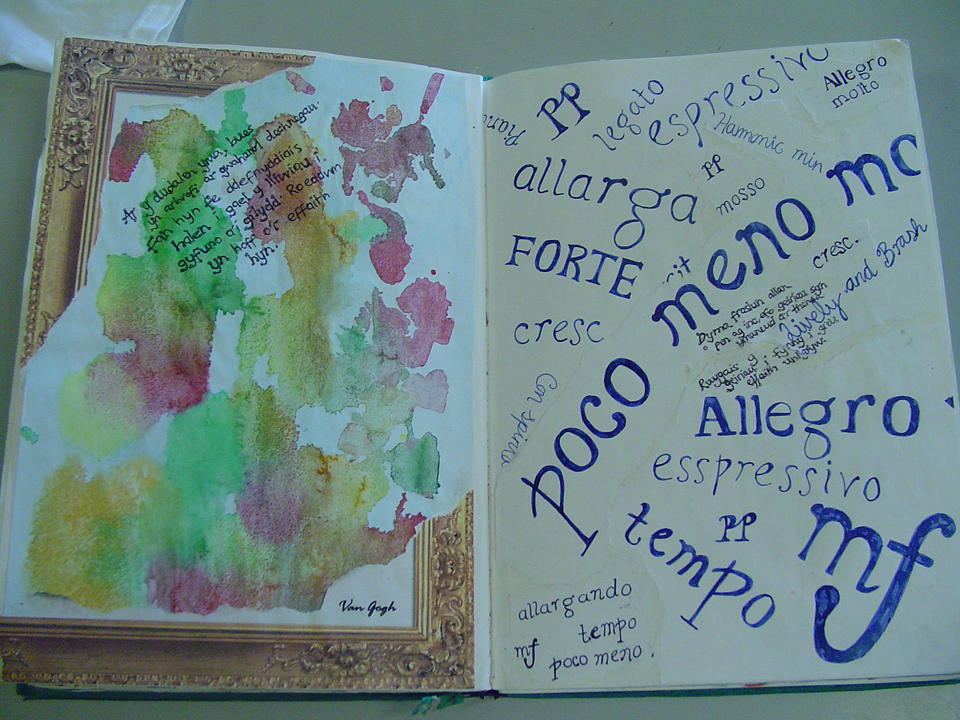 Ar y dudalen yma, bues
yn arbrofi a'r gwahanol dechnegau.
Fan hyn fe ddefnyddiais
halen i gael y lliwiau i
gyfuno a'i gilydd. Roeddwn
yn hoff o'r effaith
hyn.
Van Gogh
pp
legato
espressivo
Allegro
molto
Harmonic min
allarga
pp
mosso
poco meno mo
FORTE
rit
cresc.
cresc
Lively and Brash
Dyma frasiun allan
o pen ag inc, o'o geiriau syn
Con spirito
Allegro
esspressivo
tempo
pp
mf
allargando
tempo
mf
poco meno.